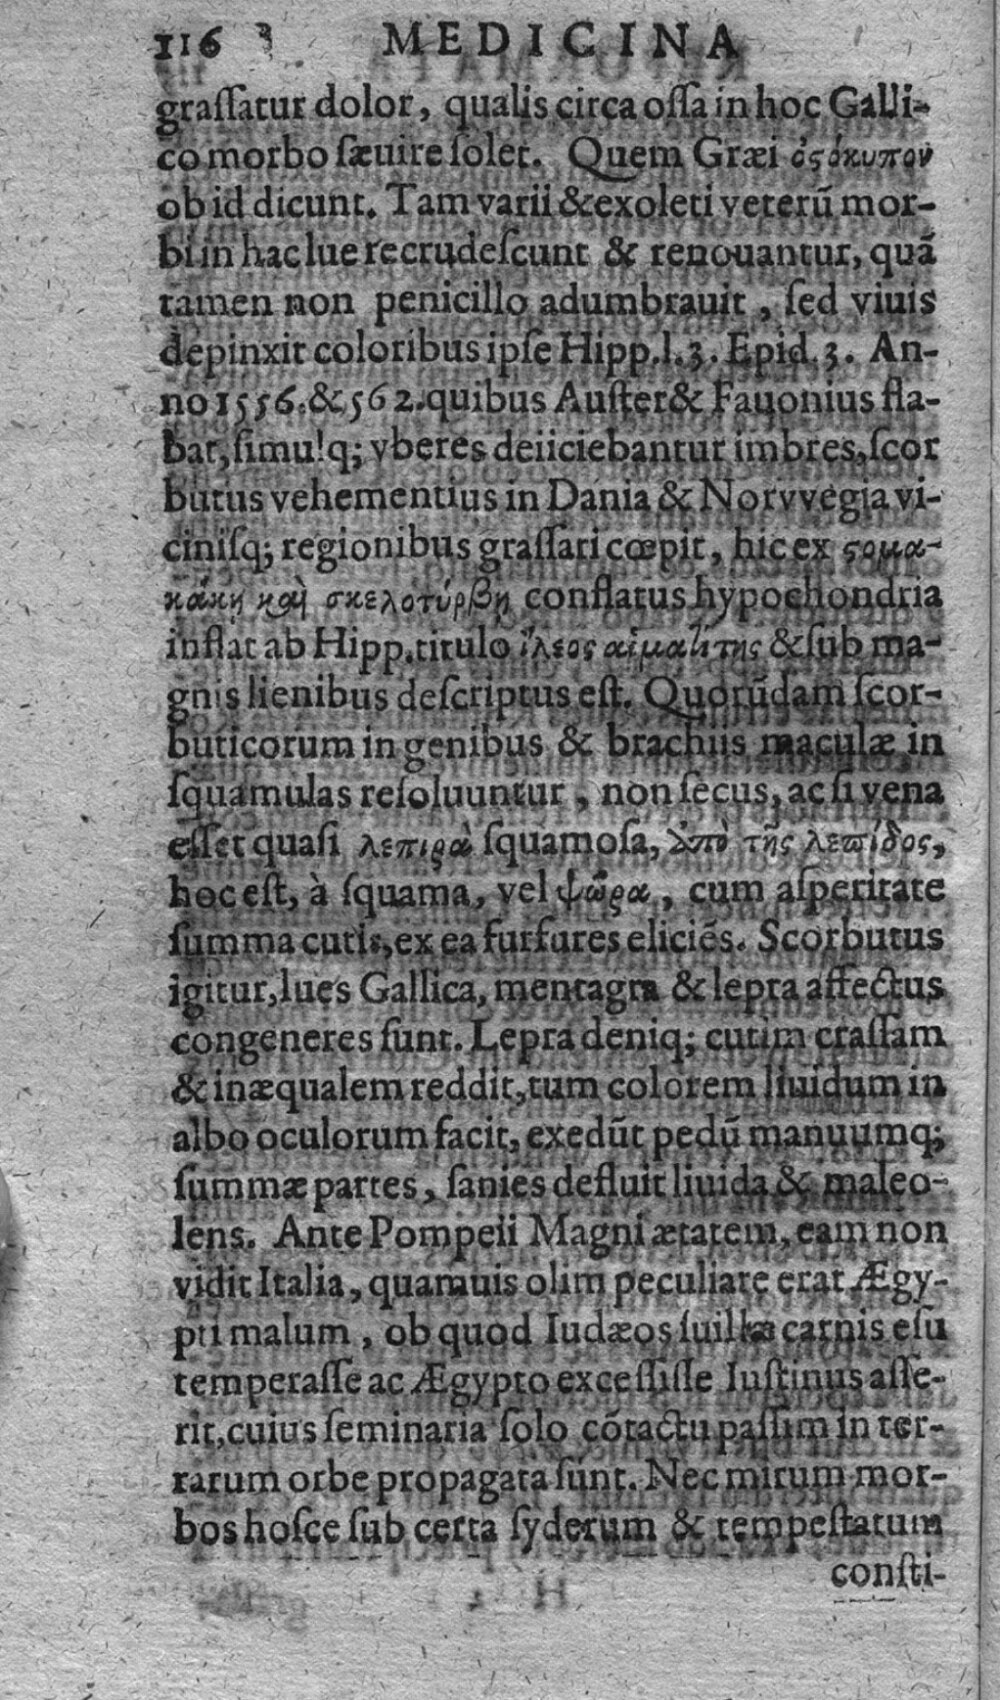 116 MEDICINA
graſſatur dolor, qualis circa oſſa in hoc Galli-
co morbo ſæuire ſolet. Quem Græi ὀςόκυπον
ob id dicunt. Tam varii & exoleti veterū mor-
bi in hac lue recrudeſcunt & renouantur, quā
tamen non penicillo adumbrauit, ſed viuis
depinxit coloribus ipſe Hipp. l. 3. Epid. 3. An-
no 1556. & 562. quibus Auſter & Fauonius fla-
bat, ſimulq; vberes deiiciebantur imbres, ſcor
butus vehementius in Dania & Norvvegia vi-
ciniſq; regionibus graſſari cœpit, hic ex ςομα-
κάκη καὶ σκελοτύρβη conflatus hypochondria
inflat ab Hipp. titulo ἴλεος αἱματίτης & ſub ma-
gnis lienibus deſcriptus eſt. Quorūdam ſcor-
buticorum in genibus & brachiis maculæ in
ſquamulas reſoluuntur, non ſecus, ac ſi vena
eſſet quaſi λεπιρὰ ſquamoſa, ἀπὸ τῆς λεπίδος,
hoc eſt, à ſquama, vel ψῶρα, cum aſperitate
ſumma cutis, ex ea furfures eliciēs. Scorbutus
igitur, lues Gallica, mentagra & lepra affectus
congeneres ſunt. Lepra deniq; cutim craſſam
& inæqualem reddit, tum colorem liuidum in
albo oculorum facit, exedūt pedū manuumq;
ſummæ partes, ſanies defluit liuida & maleo-
lens. Ante Pompeii Magni ætatem, eam non
vidit Italia, quamuis olim peculiare erat Ægy-
pti malum, ob quod Iudæos ſuillæ carnis eſu
temperaſſe ac Ægypto exceſſiſſe Iuſtinus aſſe-
rit, cuius ſeminaria ſolo cōtactu paſſim in ter-
rarum orbe propagata ſunt. Nec mirum mor-
bos hoſce ſub certa ſyderum & tempeſtatum
conſti-